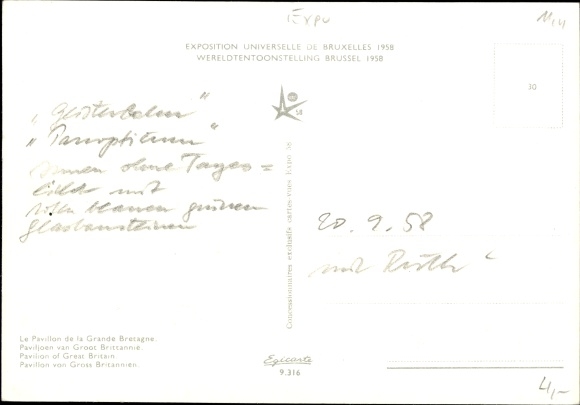 Expo
EXPOSITION UNIVERSELLE DE BRUXELLES 1958
WERELDTENTOONSTELLING BRUSSEL 1958
30
58
„Geisterbahn"
„Panoptikum"
innen ohne Tages=
mit
roten blauen grünen
Glasbausteinen
Concessionnaires exclusifs cartes vues Expo 58
20.9.58
mit Ruth
Le Pavillon de la Grande Bretagne.
Paviljoen van Groot Brittannië.
Pavilion of Great Britain.
Pavillon von Gross Britannien.
Egicarte
9.316
4,-